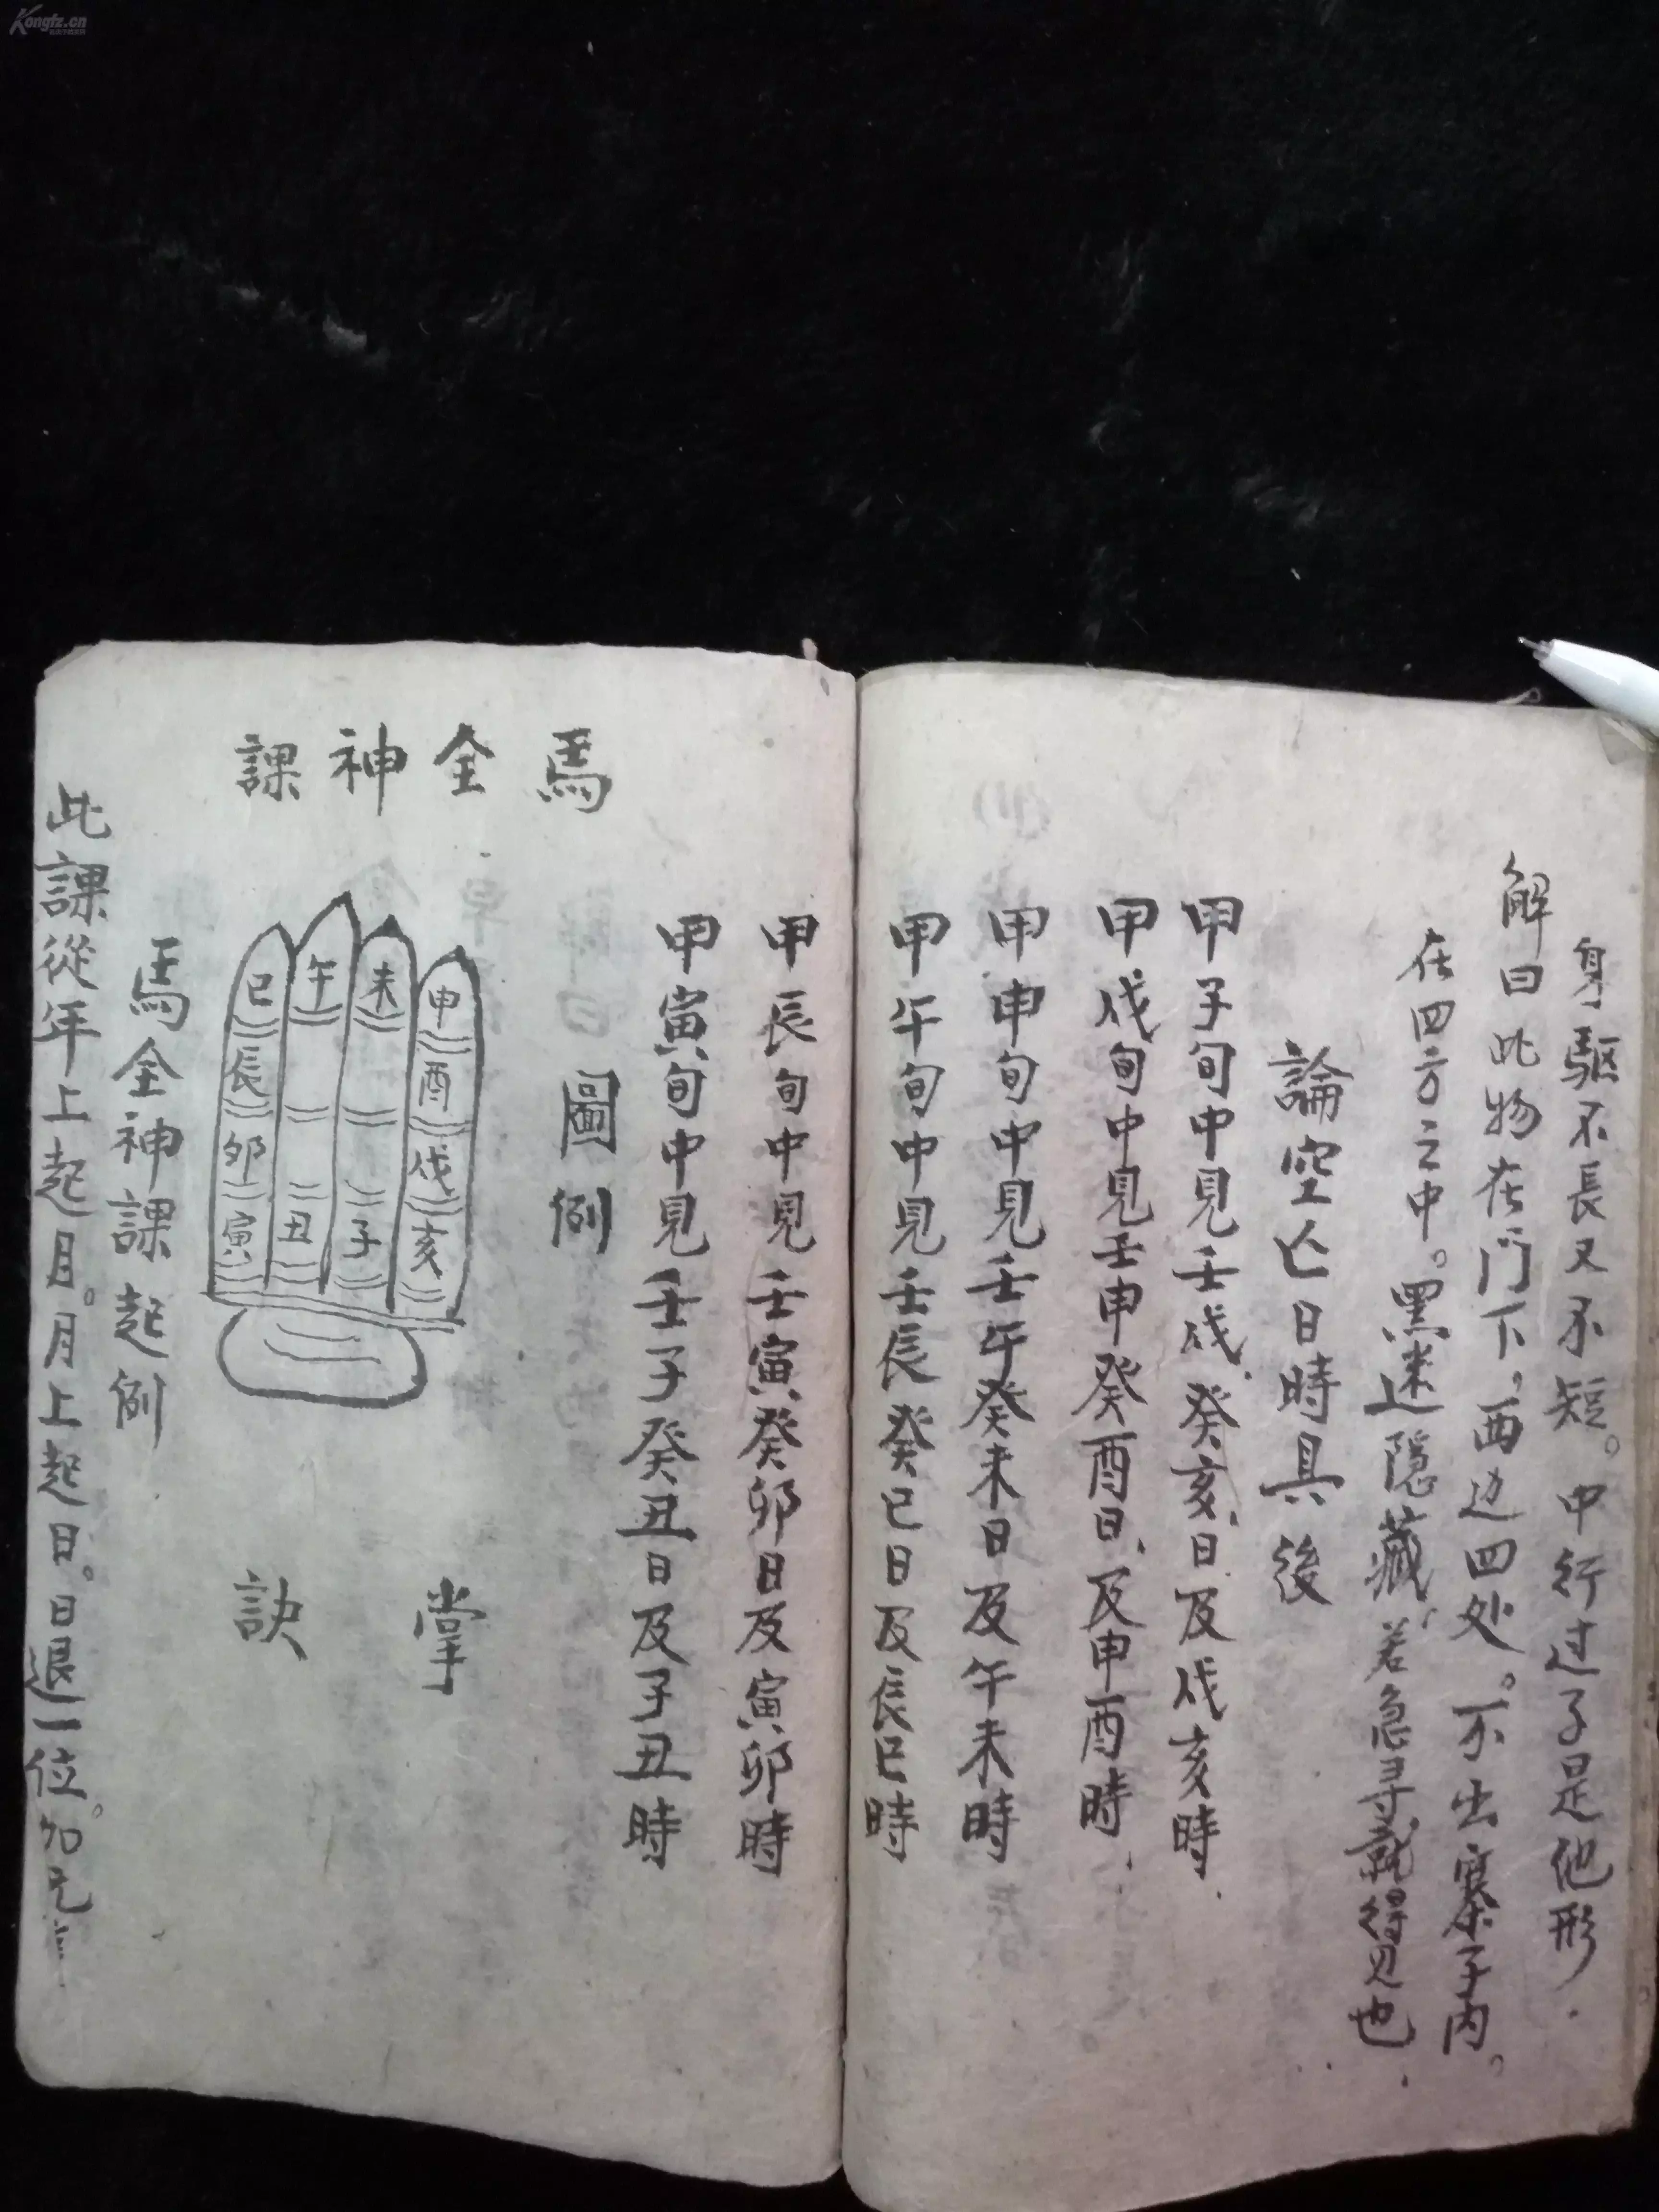 Kongfz.cn
身驅不長又不短。中行过子是他形.
解曰此物在門下,西边四处。不出寨子内。
在四方之中。黑迷隱藏,若急寻就得见也
論空亡日時具後
甲子旬中見壬戌,癸亥,日及戌亥時.
甲戌旬中見壬申癸酉日,及申酉時.
甲申旬中見壬午癸未日及午未時
甲午旬中見壬辰癸巳日及辰巳時
甲辰旬中見壬寅癸卯日及寅卯時
甲寅旬中見壬子癸丑日及子丑時
圖例
馬全神課
申酉戌亥
未子
午丑
巳辰卯寅
掌訣
馬全神課起例
此課從年上起月。月上起日。日退一位。